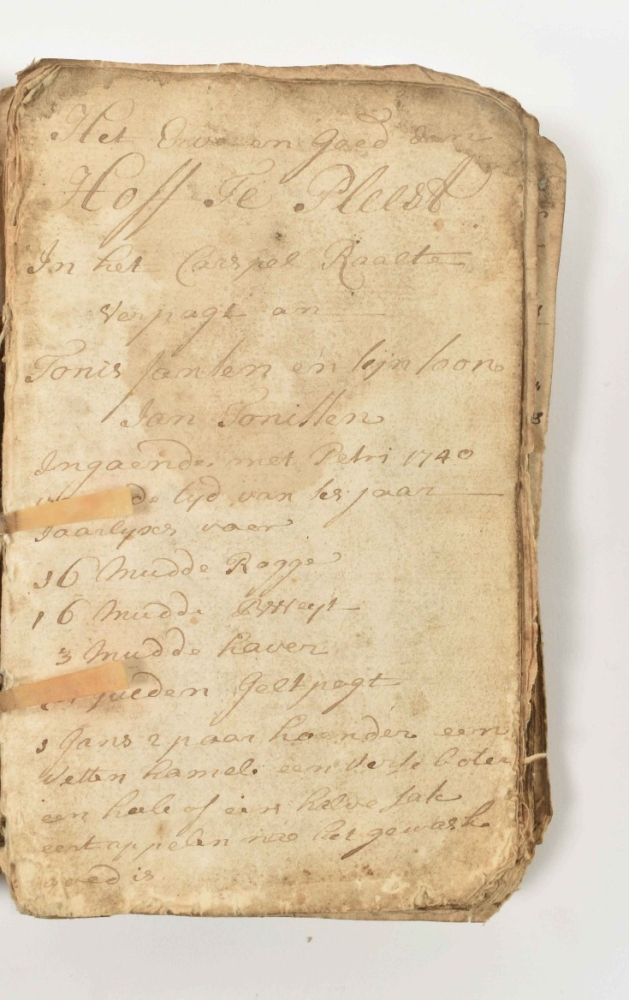 Het Erve en Goed den
Hoff Te Pleest
In het Carspel Raalte
Verpagt an
Tonis Jansen en sijn soon
Jan Tonissen
Ingaende met Petri 1740
de tyd van ses jaar
Jaarlyxs voor
16 Mudde Rogge
16 Mudde
3 Mudde haver
gulden Geltpagt
1 Gans 2 paar hoender een
Vetten hamel een
een hele of een halve sak
eertappelen na het gewas
goed is